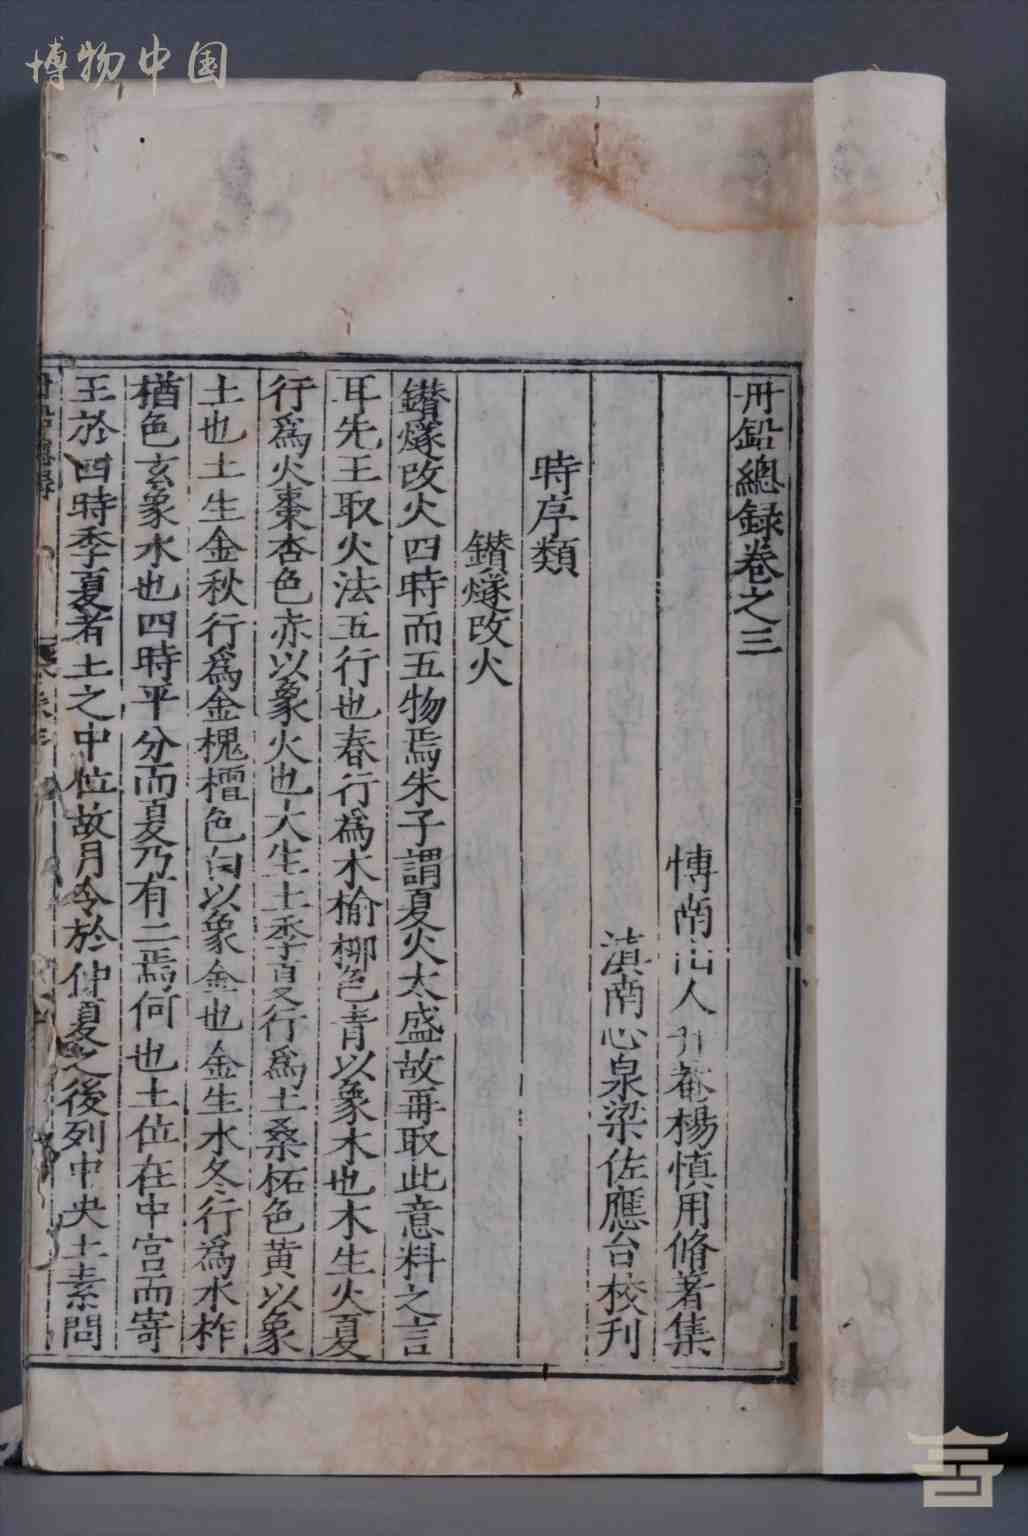 博物中国
丹鉛總録卷之三
博南山人升菴楊慎用脩著集
滇南心泉梁佐應台校刊
時序類
鑚燧改火
鑚燧改火四時而五物焉朱子謂夏火太盛故再取此意料之言
耳先王取火法五行也春行為木榆柳色青以象木也木生火夏
行爲火棗杏色赤以象火也火生土季夏行爲土桑柘色黃以象
土也土生金秋行爲金槐檀色白以象金也金生水冬行爲水柞
楢色玄象水也四時平分而夏乃有二焉何也土位在中宫而寄
王於四時季夏者土之中位故月令於仲夏之後列中央土素問